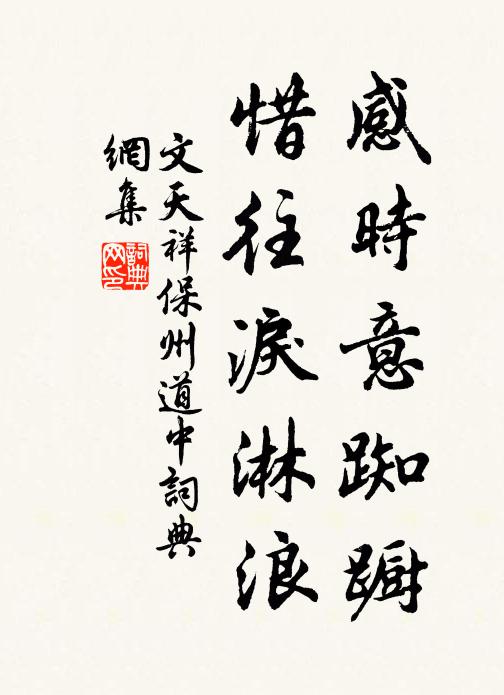 感時意踟躕
惜往淚淋浪
文天祥保州道中詞典
網集
詞典網印